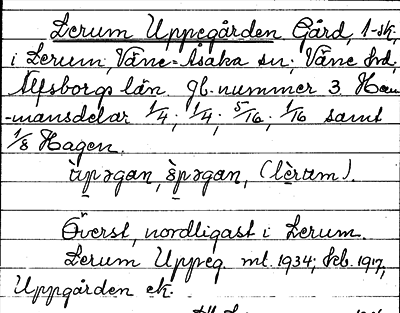 Lerum Uppegården Gård, 1-sk,
i Lerum, Väne-Åsaka sn; Väne hd,
Älfsborgs län. Jb. nummer 3 Hem
-mansdelar 1/4; 1/4; 5/16; 1/16 samt
1/8 Hagen.
ùpəgan, pəgan, (lèrum).
Överst, nordligast i Lerum.
Lerum Uppeg. ml. 1934; Feb. 1917,
Uppgården ek.